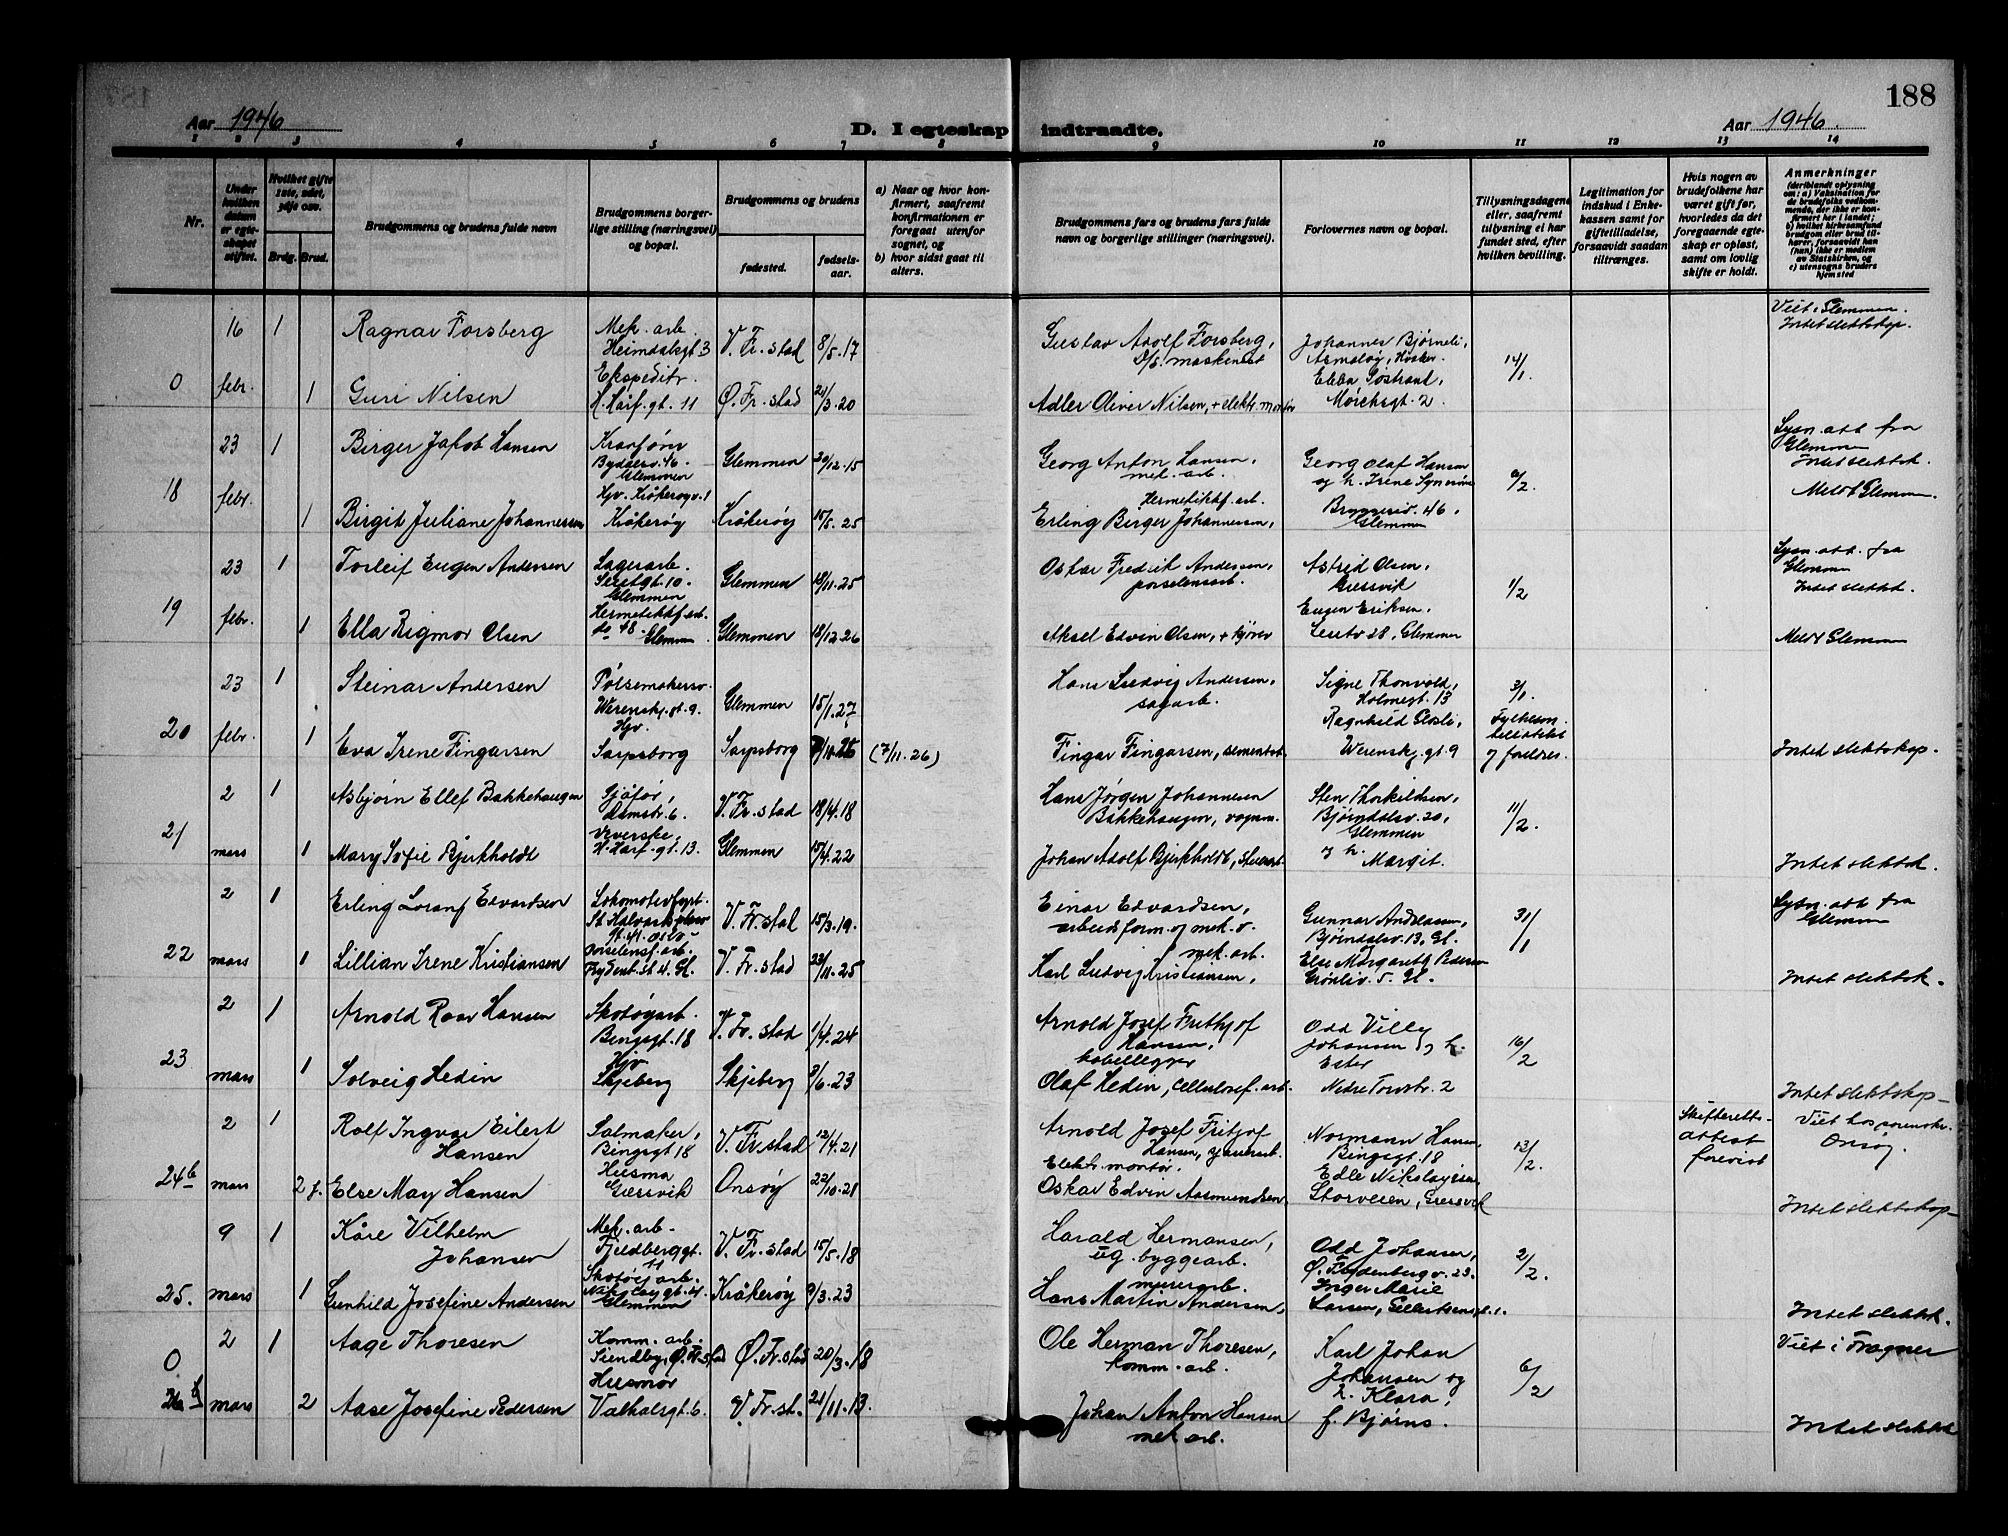 188
Aar 1946
D. I egteskap indtraadte.
Aar 1946.
1 2 3 4 5 6 7 8 9 10 11 12 13 14
Nr.
Under hvilken datum er egte-skapet stiftet.
Hvilket gifte 1ste, 2det, 3dje osv.
Brdg. Brud.
Brudgommens og brudens fulde navn
Brudgommens borger-lige stilling (næringsvei) og bopæl.
Brudgommens og brudens
fødested.
fødsels-aar.
a) Naar og hvor kon-firmert, saafremt konfirmationen er foregaat utenfor sognet, og
b) hvor sidst gaat til alters.
Brudgommens fars og brudens fars fulde navn og borgerlige stillinger (næringsvei).
Forlovernes navn og bopæl.
Tillysningsdagene eller, saafremt tillysning ei har fundet sted, efter hvilken bevilling.
Legitimation for indskud i Enke-kassen samt for giftetilladelse, forsaavidt saadan tiltrænges.
Hvis nogen av brudefolkene har været gift før, hvorledes da det foregaaende egte-skap er opløst, samt om lovlig skifte er holdt.
Anmerkninger
(deriblandt oplysning om: a) Vaksination for de brudefolks vedkom-mende, der ikke er kon-firmert her i landet; b) hvilket kirkesamfund brudgom eller brud til-hører, forsaavidt han (hun) ikke er medlem av Statskirken, og c) utensogns bruders hjemsted
0
16 1 Ragnar Forsberg Mek. arb. Heimdalsgt 3 V. Fr. stad 8/5.17 Gustav Adolf Forsberg, D/S. maskinist Johannes Bjørneli, Asmaløy, Hvaler. 14/1. Viet i Glemmen. Intet slektskap.
febr. 1 Guri Nilsen Ekspeditr. Ø. Fr. stad 21/3.20 Adler Oliver Nilsen, + elektr. montør Ebba Søstrand, Mørchsgt. 2.
18
23 1 Birger Jakob Hansen Glemmen Glemmen 20/12.15 Georg Anton Hansen, mek. arb. Georg Olaf Hansen og h. Irene 9/2. Lysn. att fra Glemmen Intet slektsk.
febr. 1 Birgit Juliane Johannessen Hjv. Kråkerøy Kråkerøy 15/5.25 Hermetikkf. arb. Erling Birger Johannessen, 46, Glemmen Meldt Glemmen.
19
23 1 Torleif Eugen Andersen Lagerarb. Glemmen Glemmen 18/11.25 Oskar Fredrik Andersen, porselensarb. Astrid Olsen, Gressvik 1/2 Lysn. att. fra Glemmen Intet slektsk.
febr. 1 Ella Rigmor Olsen Hermetikkf. arb. do 48. Glemmen Glemmen 18/12.26 Aksel Edvin Olsen, + kjører Eugen Eriksen, 28, Glemmen Meldt Glemmen
20
23 1 Steinar Andersen Pølsemakersv. Werenskj. gt. 9. Glemmen 15/1.27 Hans Ludvig Andersen, sagarb. Signe Thorvold, Holmegt. 13 3/1.
febr. 1 Eva Irene Fingarsen Hjv. Sarpsborg Sarpsborg (7/11.26) Fingar Fingarsen, Ragnhild Werenskj. gt. 9 Fylkesm. tillatelse g foreldres. Intet slektskap.
21
2 1 Asbjørn Ellef Bakkehaugen Sjåfør, Damstr. 6. V. Fr. stad 18/4.18 Hans Jørgen Johannesen Bakkehaugen, vognm. Sten Thorkildsen, Bjørndalsv. 20, Glemmen 11/2.
mars 1 Mary Sofie Bjerkholdt Veverske, H. Harf. gt. 13. Glemmen 15/4.22 Johan Adolf Bjerkholdt, og h. Margit. Intet slektsk.
22
2 1 Erling Edvardsen Lokomotivfyrb. Oslo V. Fr. stad 15/3.19. Einar Edvardsen, arbeidsform. og mek. v. Gunnar Andreassen, Bjørndalsv. 13, Gl. 31/1 Lysn. att fra Glemmen
mars 1 Lillian Irene Kristiansen Porselensf. arb. V. Fr. stad 23/11.25 mek. arb. Karl Ludvig Kristiansen, Else Margareth Pedersen Grønliv. 5. Gl. Intet slektsk.
23
2 1 Arnold Roar Hansen Skotøyarb. Bingsgt. 18 V. Fr. stad 1/4.24 Arnold Josef Frithjof Hansen, kabellegger Odd Villy Johansen og h. Ester 16/2
mars 1 Solveig Hedin Hjv Skjeberg Skjeberg 3/6.23 Olaf Hedin, Cellulosef. arb. Nedre Torvstr. 2 Intet slektskap
24b
2 1 Rolf Ingvar Eilert Hansen Salmaker, Bingsgt 18 V. Fr. stad 12/4.21 Arnold Josef Fritjof Hansen, Normann Hansen Bingsgt. 18 13/2. Skifteretts-attest forevist Viet hos Onsøy.
mars 2 f. Else May Hansen Husmor Gressvik Onsøy 22/10.21 Elektr. montør. Oskar Edvin Aasmundsen, Edle Nikolaysen Storveien, Gressvik Intet slektskap
25.
9 1 Kåre Vilhelm Johansen Mek. arb. Fjeldberggt. 11 V. Fr. stad 15/5.18 Harald Hermansen, byggearb. Odd Johansen, 23. 2/2.
mars 1 Gunhild Josefine Andersen Skotøyarb. Glemmen Kråkerøy 9/3.23 murerarb. Hans Martin Andersen, Inger Marie Larsen, Intet slektsk.
0
2 1 Aage Thoresen Komm. arb. Ø. Fr. stad Ø. Fr. stad 20/3.18 Ole Herman Thoresen, komm. arb. Karl Johan Johansen og h. Klara, f. Bjørns. 6/2 Viet i Frogner
mars 2 Aase Josefine Pedersen Husmor Valhalsgt. 6. V. Fr. st. 21/11.13. Johan Anton Hansen mek arb. Intet slektsk